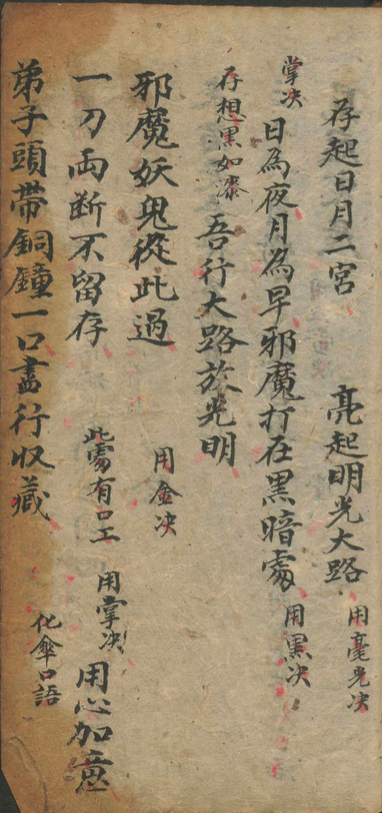 存起日月二宮 亮起明光大路 用毫光决
掌决 日為夜月為早邪魔打在黑暗處 用黒决
存想黒如漆 吾行大路於光明
邪魔妖鬼從此過 用金决
一刀両断不留存 此處有口工 用掌决 用心加意
弟子頭帶銅鐘一口盡行収藏 化傘口語